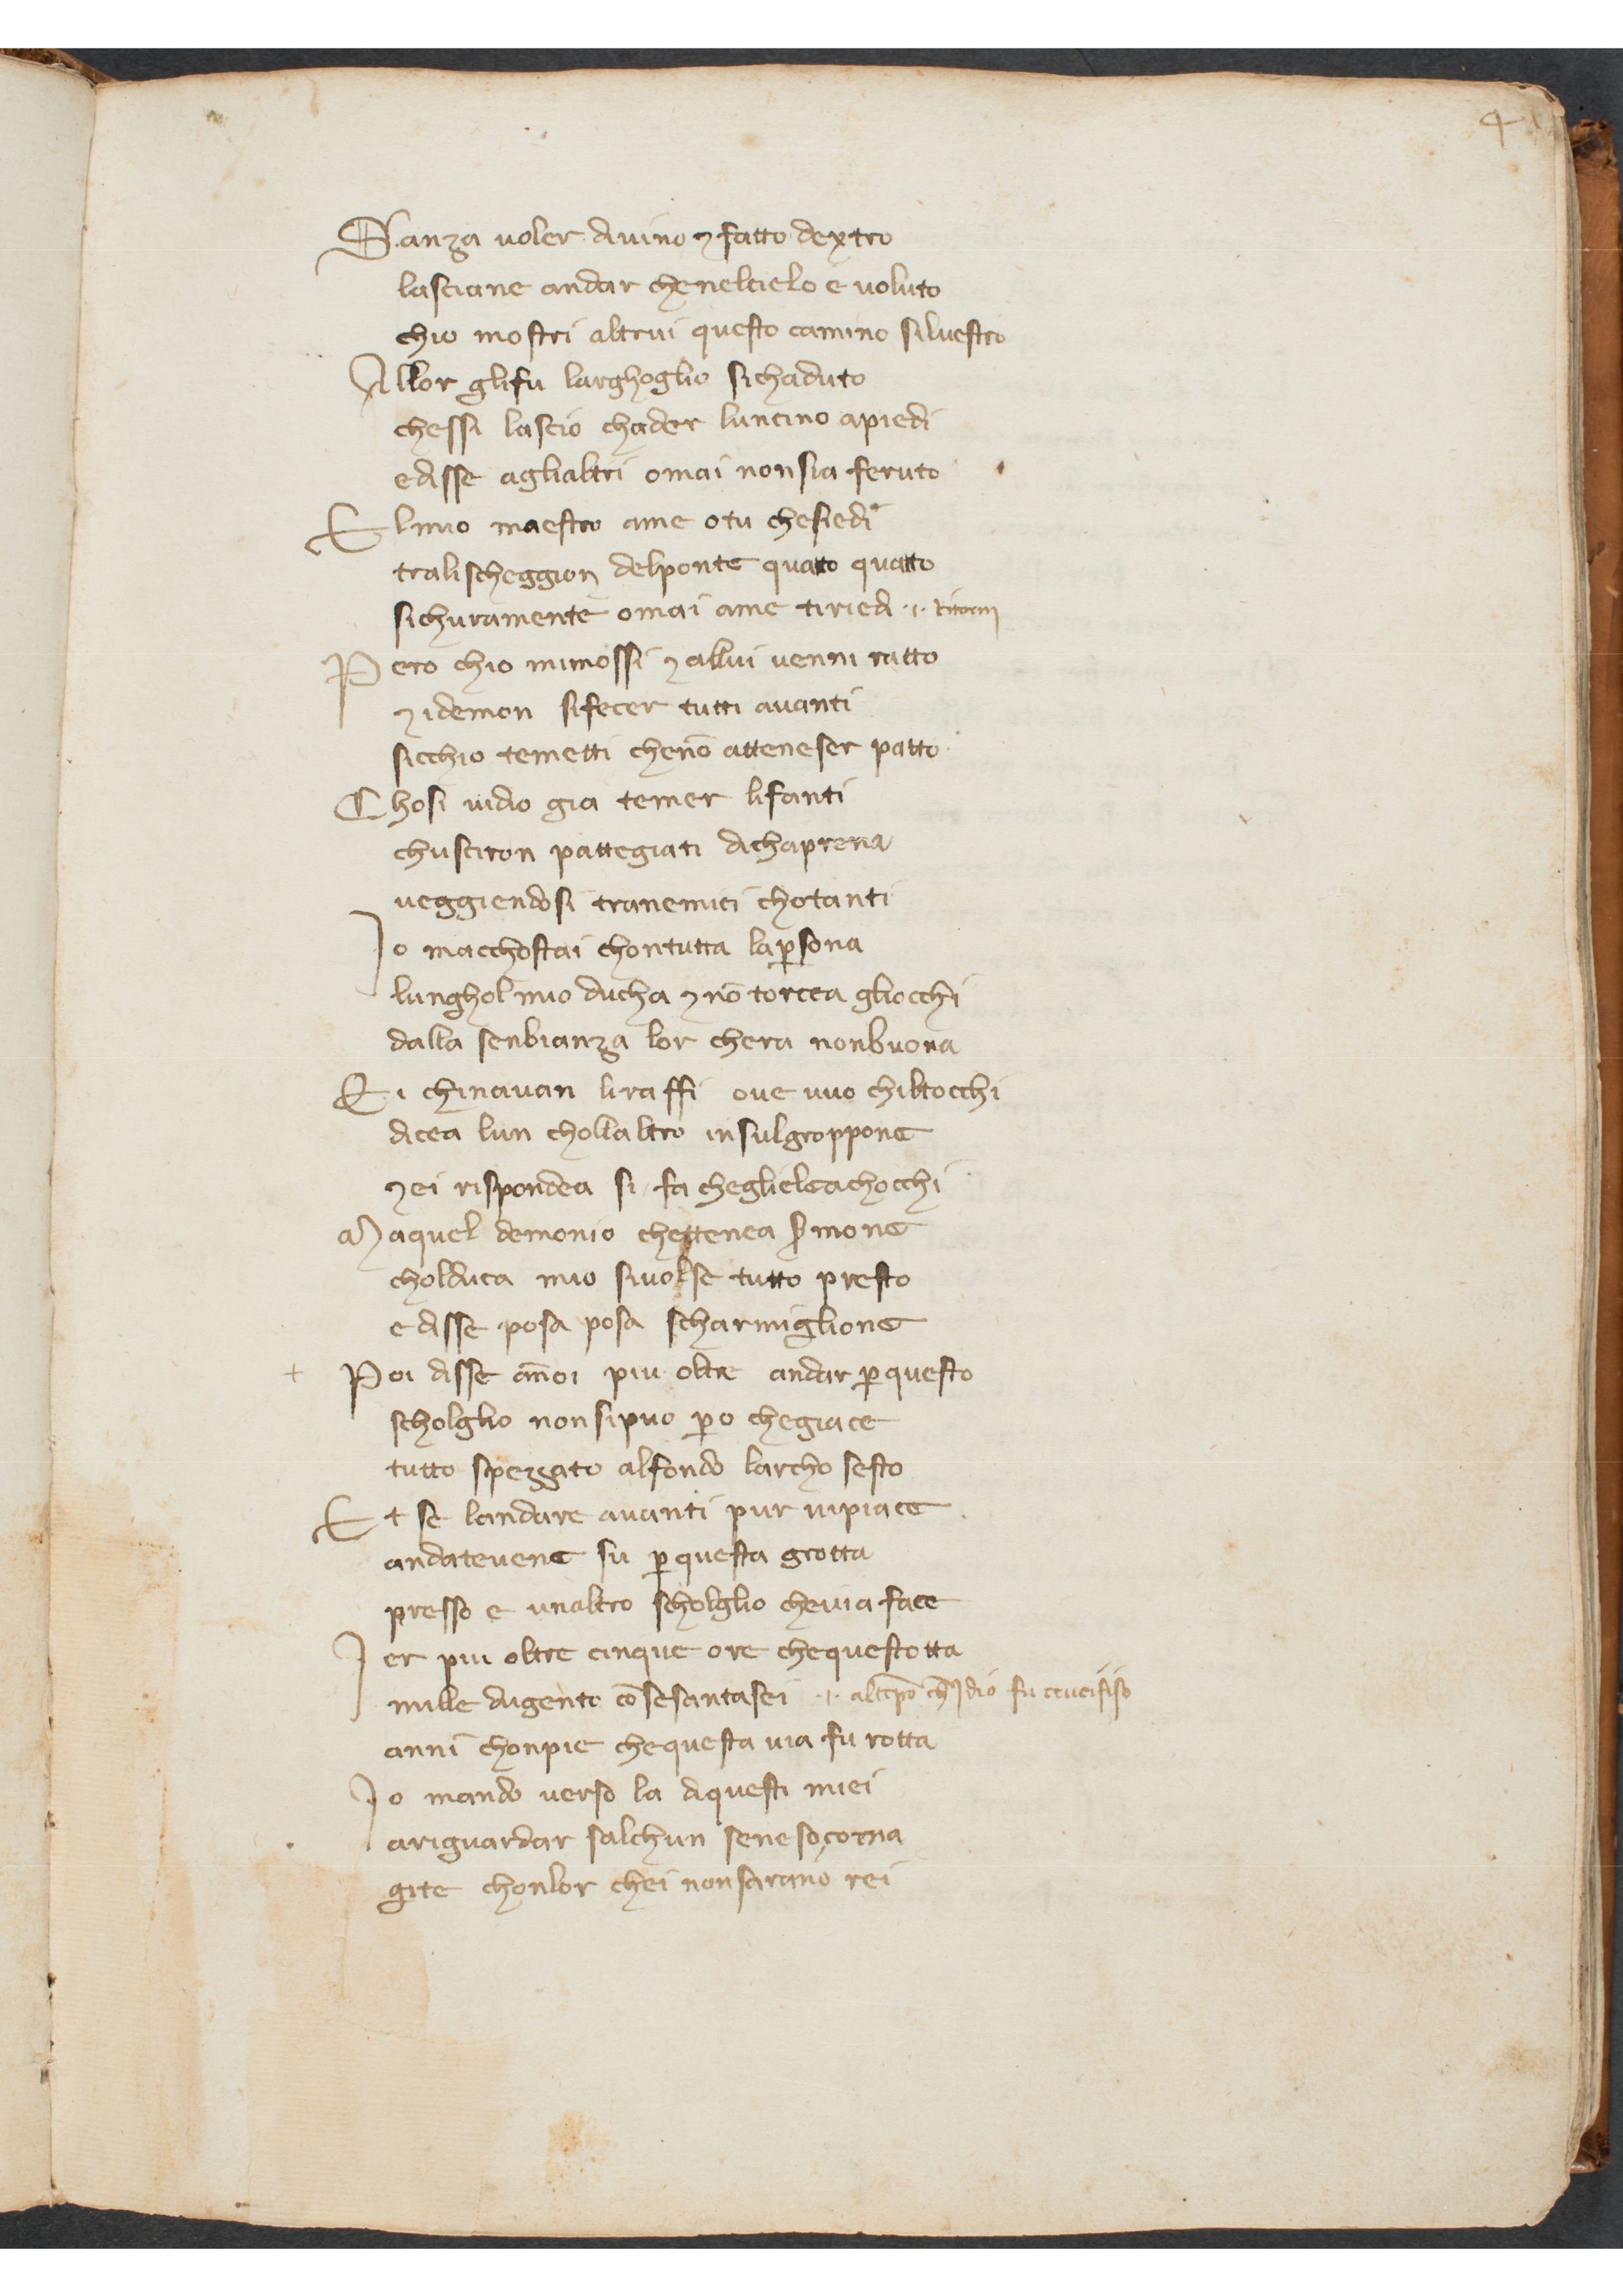 4
Sanza uoler diuino ⁊ fatto dextro
lasciane andar chenelcielo e uoluto
chio mostri altrui questo camino siluestro
Allor glifu larghoglio sichaduto
chessi lascio chader luncino apiedi
edisse aglialtri omai nonsia feruto
Elmio maestro ame otu chesiedi
tralischeggion delponte quatto quatto
sichuramente omai ame tiriedi
Pero chio mimossi ⁊ allui uenni ratto
⁊ idemon sifecer tutti auanti
sicchio temetti chenō atteneser patto
Chosi uidio gia temer lifanti
chusciron pattegiati dichaprena
ueggiendosi tranemici chotanti
Io macchostai chontutta lapersona
lunghol mio ducha ⁊ nō torcea gliocchi
dalla senbianza lor chera nonbuona
Ei chinauan liraffi oue uuo chiltocchi
dicea lun chollaltro insulgroppone
⁊ ei rispondea si fa cheglielachocchi
Maquel demonio chettenea sermone
cholduca mio siuolse tutto presto
edisse posa posa scharmiglione
+ Poi disse ānoi piu oltre andar perquesto
scholglio nonsipuo pero chegiace
tutto spezzato alfondo larcho sesto
Et se landare auanti pur uipiace
andateuene su perquesta grotta
presso e unaltro scholglio cheuia face
Ier piu oltre cinque ore chequestotta
mille dugento cō sesantasei altēpo chē Idio fu crucifiso
anni chonpie chequesta uia fu rotta
Io mando uerso la diquesti miei
ariguardar salchun senesoçorna
gite chonlor chei nonsarano rei